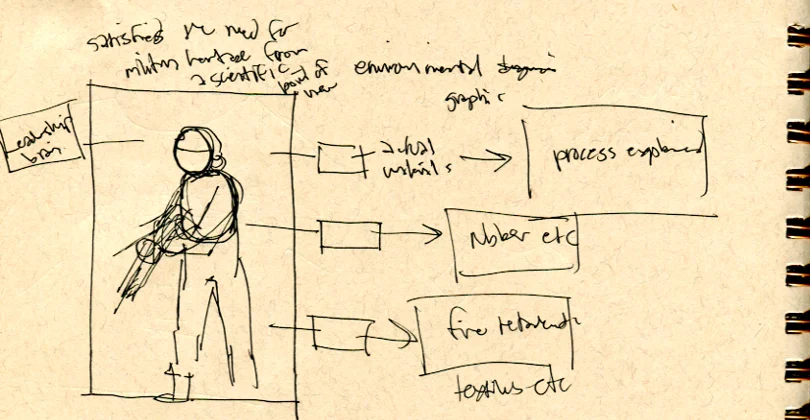 satisfied the need for
military heritage from
a scientific
point of
view
environmental
graphic
Leadership
brain
actual
materials
process explained
rubber etc
fire retardant
textiles etc